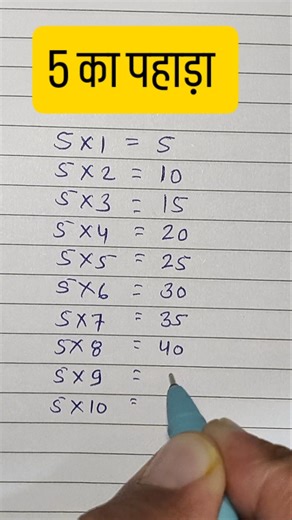 5 का पहाड़ा
5 X 1 = 5
5 X 2 = 10
5 X 3 = 15
5 X 4 = 20
5 X 5 = 25
5 X 6 = 30
5 X 7 = 35
5 X 8 = 40
5 X 9 =
5 X 10 =